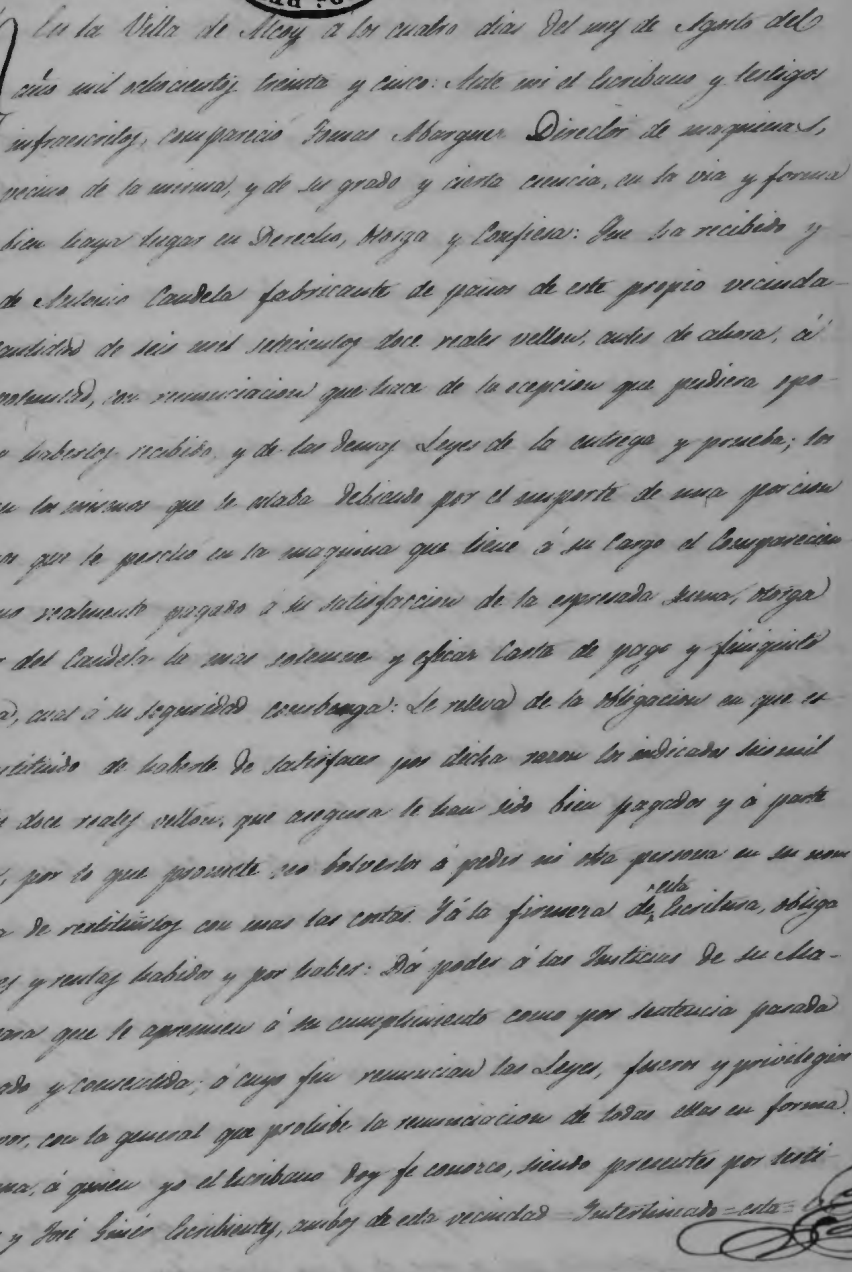 En la Villa de Alcoy a los cuatro dias del mes de Agosto del
año mil ochocientos treinta y cinco: Ante mi el Escribano y testigos
infraescritos, comparecio Tomas Marquez Director de maquinas,
vecino de la misma, y de su grado y cierta ciencia, en la via y forma
bien haya lugar en Derecho, Otorga y Confiesa: Que ha recibido y
de Antonio Candela fabricante de paños de este propio vecinda-
cantidad de seis mil setecientos doce reales vellon, antes de ahora, á
voluntad, con renunciacion que hace de la ecepcion que pudiera opo-
haberlos recibido, y de las demas Leyes de la entrega y prueba; los
los mismos que le estaba debiendo por el importe de una porcion
que le percho en la maquina que tiene á su Cargo el Comparecien
realmente pagado á su satisfaccion de la espresada suma, otorga
del Candela la mas solemne y eficaz Carta de pago y finiquito
cual á su seguridad combenga: Le releva de la obligacion en que es-
tituido de haberle de satisfacer por dicha razon los indicados seis mil
doce reales vellon, que asegura le han sido bien pagados y á parte
por lo que promete no bolverlos á pedir ni otra persona en su nom
de restituirlos con mas las costas. Y á la firmeza de ^esta Escritura, obliga
y rentas habidos y por haber: Dá poder á las Justicias de su Ma-
para que le apremien á su cumplimiento como por sentencia pasada
y consentida; á cuyo fin renuncian las Leyes, fueros y privilegios
con la general que prohibe la renunciacion de todas ellas en forma.
á quien yo el Escribano doy fe conozco, siendo presentes por testi-
y José Ginés Escribientes, ambos de esta vecindad = Interlineado = esta =